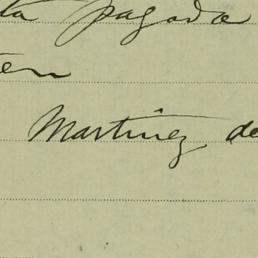 ta pagada
ten
Martinez de